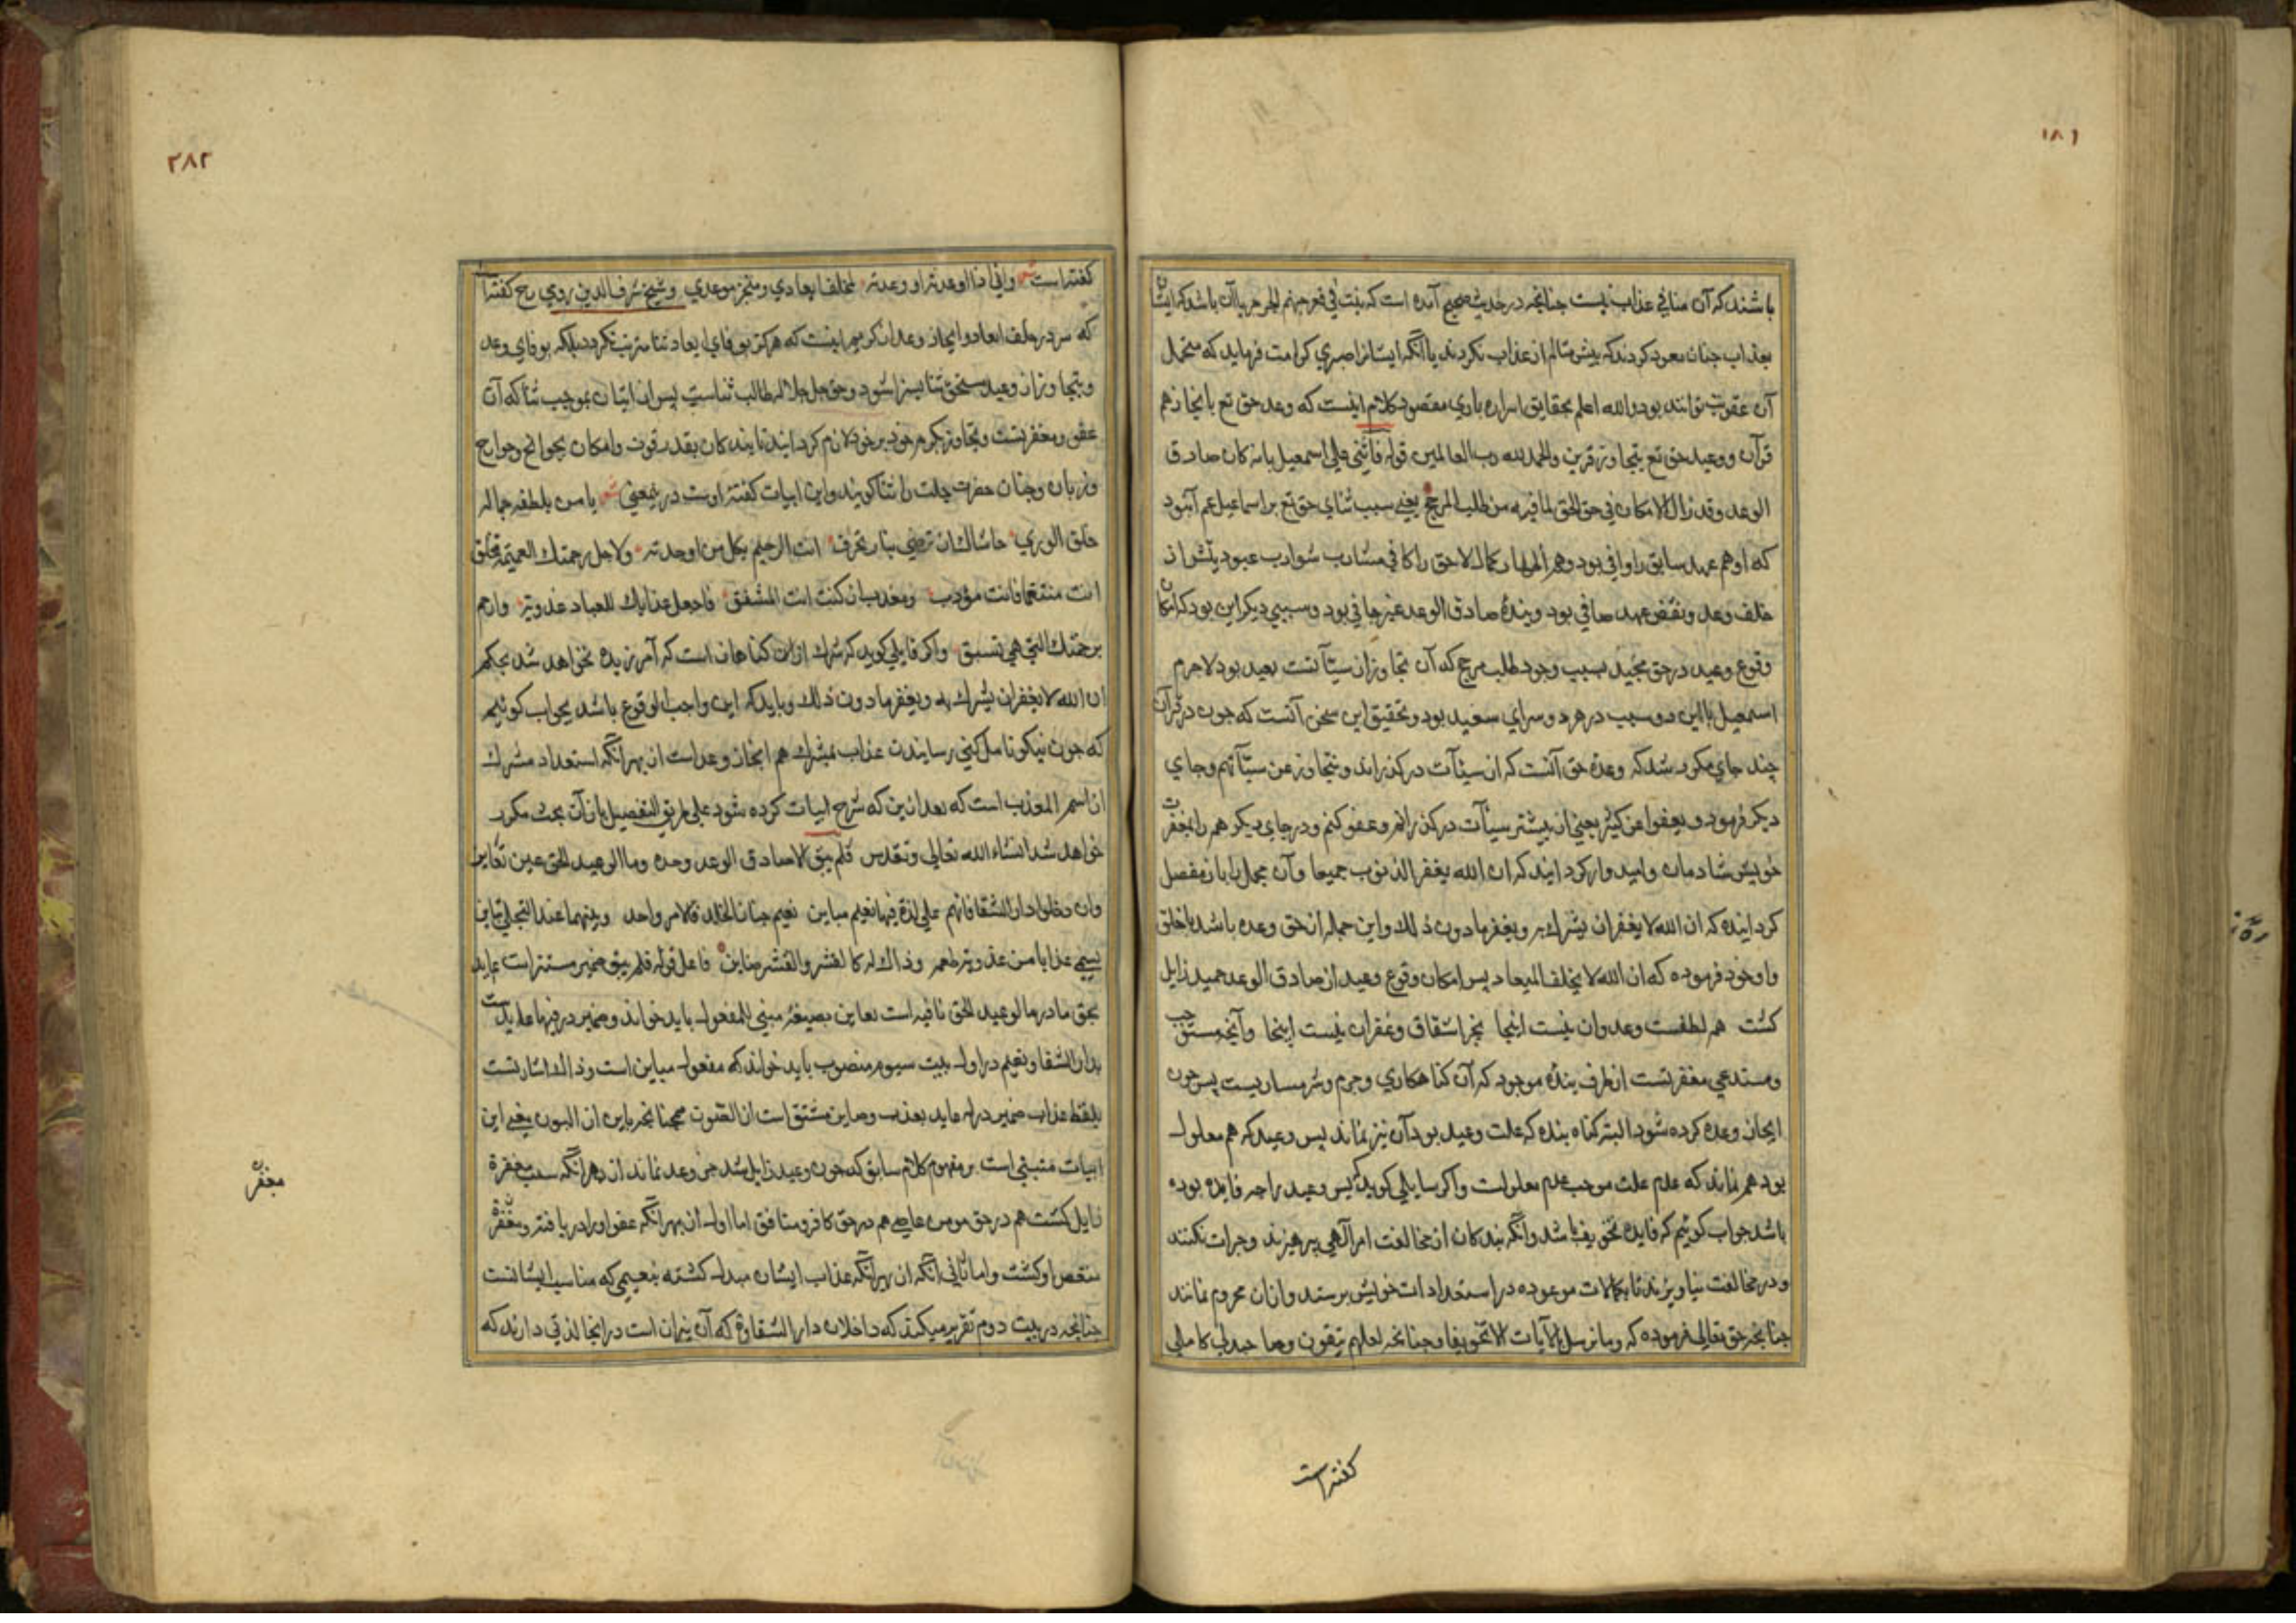 ١٨١
باشند که آن منافی عذاب نیست چنانچه در حدیث صحیح آمده است که ینبت فی قعر جهنم الجرجیر یا آن باشد که ایشان
بعذاب چنان معود کردند که بیش متالم از عذاب نکردند یا آنکه ایشانرا صبری کرامت فرماید که متحمل
آن عقوبت توانند بود والله اعلم بحقایق اسراره باری مقصود کلام اینست که وعد حق تع بانجاز هم
قرآن ووعید حق تع بتجاوز قرین والحمد لله رب العالمین قوله فاثنی علی اسمعیل بانه کان صادق
الوعد وقد زال الامکان فی حق الحق لما فیه من طلب المرجح یعنی سبب ثنای حق تع بر اسماعیل عم آن بود
که او هم عهد سابق را وافی بود وهم اظهار کمال لاحق را کافی مشارب شوارب عبودیتش از
خلف وعد ونقض عهد صافی بود وبنده صادق الوعد غیر جافی بود وسببی دیکر این بود که امکان
وقوع وعید در حق مجید بسبب وجود طلب مرجح که آن تجاوز از سیآتست بعید بود لاجرم
اسمعیل با این دو سبب در هر دو سرای سعید بود وتحقیق این سخن آنست که چون در قرآن
چند جای مکرر شد که وعده حق آنست که از سیئات درکذراند ونتجاوز عن سیّآتهم وجای
دیکر فرمود ویعفوا عن کثیر یعنی از بیشتر سیئات درکذرانم وعفو کنم ودر جای دیکر هم را بمغفرت
خویش شادمان وامیدوار کردانید که ان الله یغفر الذنوب جمیعا وآن مجمل را باز مفصل
کردانیده که ان الله لا یغفر ان یشرک به ویغفر ما دون ذلک واین جمله از حق وعده باشد با خلق
واو خود فرموده که ان الله لا یخلف المیعاد پس امکان وقوع وعید از صادق الوعد حمید زایل
کشت هم لطفست وعدوان نیست اینجا بجز اشفاق وغفران نیست اینجا وآنچه مستوجب
ومستدعی مغفرتست از طرف بنده موجود که آن کناهکاری وجرم وشرمساریست پس چون
ایجاز وعده کرده شود البته کناه بنده که علت وعید بود آن نیز نماند پس وعید که هم معلول
بود هم نماند که عدم علت موجب عدم معلولست واکر سایلی کوید که پس وعید را چه فایده بوده
باشد جواب کوئیم که فایده تخویف باشد وآنکه بندکان از مخالفت امر آلهی بپرهیزند وجرات نکنند
ودر مخالفت نیاویزند تا بکمالات موعوده در استعدادات خویش برسند واز آن محروم نمانند
چنانچه حق تعالی فرموده که وما نرسل بالآیات الا تخویفا وچنانچه لعلهم یتقون وصاحبدلی کاملی
کفته است
٢٨٢
کفته است شعر وانی اذا اوعدته او وعدته لمخلف ایعادی ومنجز موعدی وشیخ شرف الدین رومی رح کفته است
که سر در خلف ایعاد وایجاز وعد از کریم اینست که هرکز بوفای ایعاد ثنا مترتب نکردد بلکه بوفای وعد
وبتجاوز از وعید مستحق ثنا بسزا شود وحق جل جلاله طالب ثناست پس از ایتان بموجب ثنا که آن
عفو ومغفرتست وتجاوز بکرم خود بر خود لازم کردانید تا بندکان بقدر قوت وامکان بجوانح وجوارح
وزبان وجنان حضرت جلت را ثنا کویند واین ابیات کفته اوست در یمعنی شعر یا من بلطفه جماله
خلق الوری حاشاک ان ترضی بنار تحرق انت الرحیم بکل من اوجدته ولاجل رحمتک العمیمة تخلق
انت منتقما فانت مؤدب ومعذبا ان کنت انت المشفق فاجعل عذابک للعباد عذوبة وارحم
برحمتک التی هی تسبق واکر قایلی کوید که شرک از آن کناهان است که آمرزیده نخواهد شد بحکم
ان الله لا یغفر ان یشرک به ویغفر ما دون ذلک وباید که این واجب الوقوع باشد بجواب کوئیم
که چون نیکو تامل کنی رسانیدن عذاب بمشرک هم ایجاز وعد است از بهر آنکه استعداد مشرک
از اسم المعذب است که بعد ازین که شرح ابیات کرده شود علی طریق التفصیل باز آن بحث مکرر
خواهد شد انشاء الله تعالی وتقدس فلم یبق الا صادق الوعد وحده وما الوعید الحق عین تعاین
وان دخلوا دار الشقا فانهم علی لذة فیها نعیم مباین نعیم جنان الخلد فالامر واحد وبینهما عند التجلی تباین
یسمی عذابا من عذوبة طعمه وذاک له کالقشر والقشر صاین فاعل قوله فلم یبق ضمیر مستتر است عاید
بحق ما در ما الوعید الحق نافیه است تعاین بصیغه مبنی للمفعول باید خواند وضمیر در فیها عایدست
بدار الشقا ونعیم در اول بیت سیوم منصوب باید خواند که مفعول مباین است وذاک اشارتست
بلفظ عذاب ضمیر در له عاید بعذب وصاین مشتق است از الصون همچنانچه باین از البون یعنی این
ابیات متبنی است بر مفهوم کلام سابق که چون وعید زایل شد جز وعد نماند از بهر آنکه سبب مغفرة
زایل کشت هم در حق مومن عاصی هم در حق کافر ومنافق اما اول از بهر آنکه عفو او را دریافته ومغفرة
منقص او کشت واما ثانی آنکه از بهر آنکه عذاب ایشان مبدل کشته بنعیمی که مناسب ایشانست
چنانچه در بیت دوم تقریر میکند که داخلان دار الشقاوة که آن نیران است در اینجا لذتی دارند که